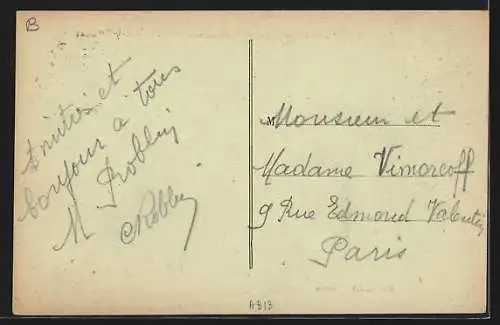 B
Amitiés et
bonjour à tous
M Roblin
CRoblin
M
Monsieur et
Madame Vimorcoff
9 Rue Edmond Valentin
Paris
A313